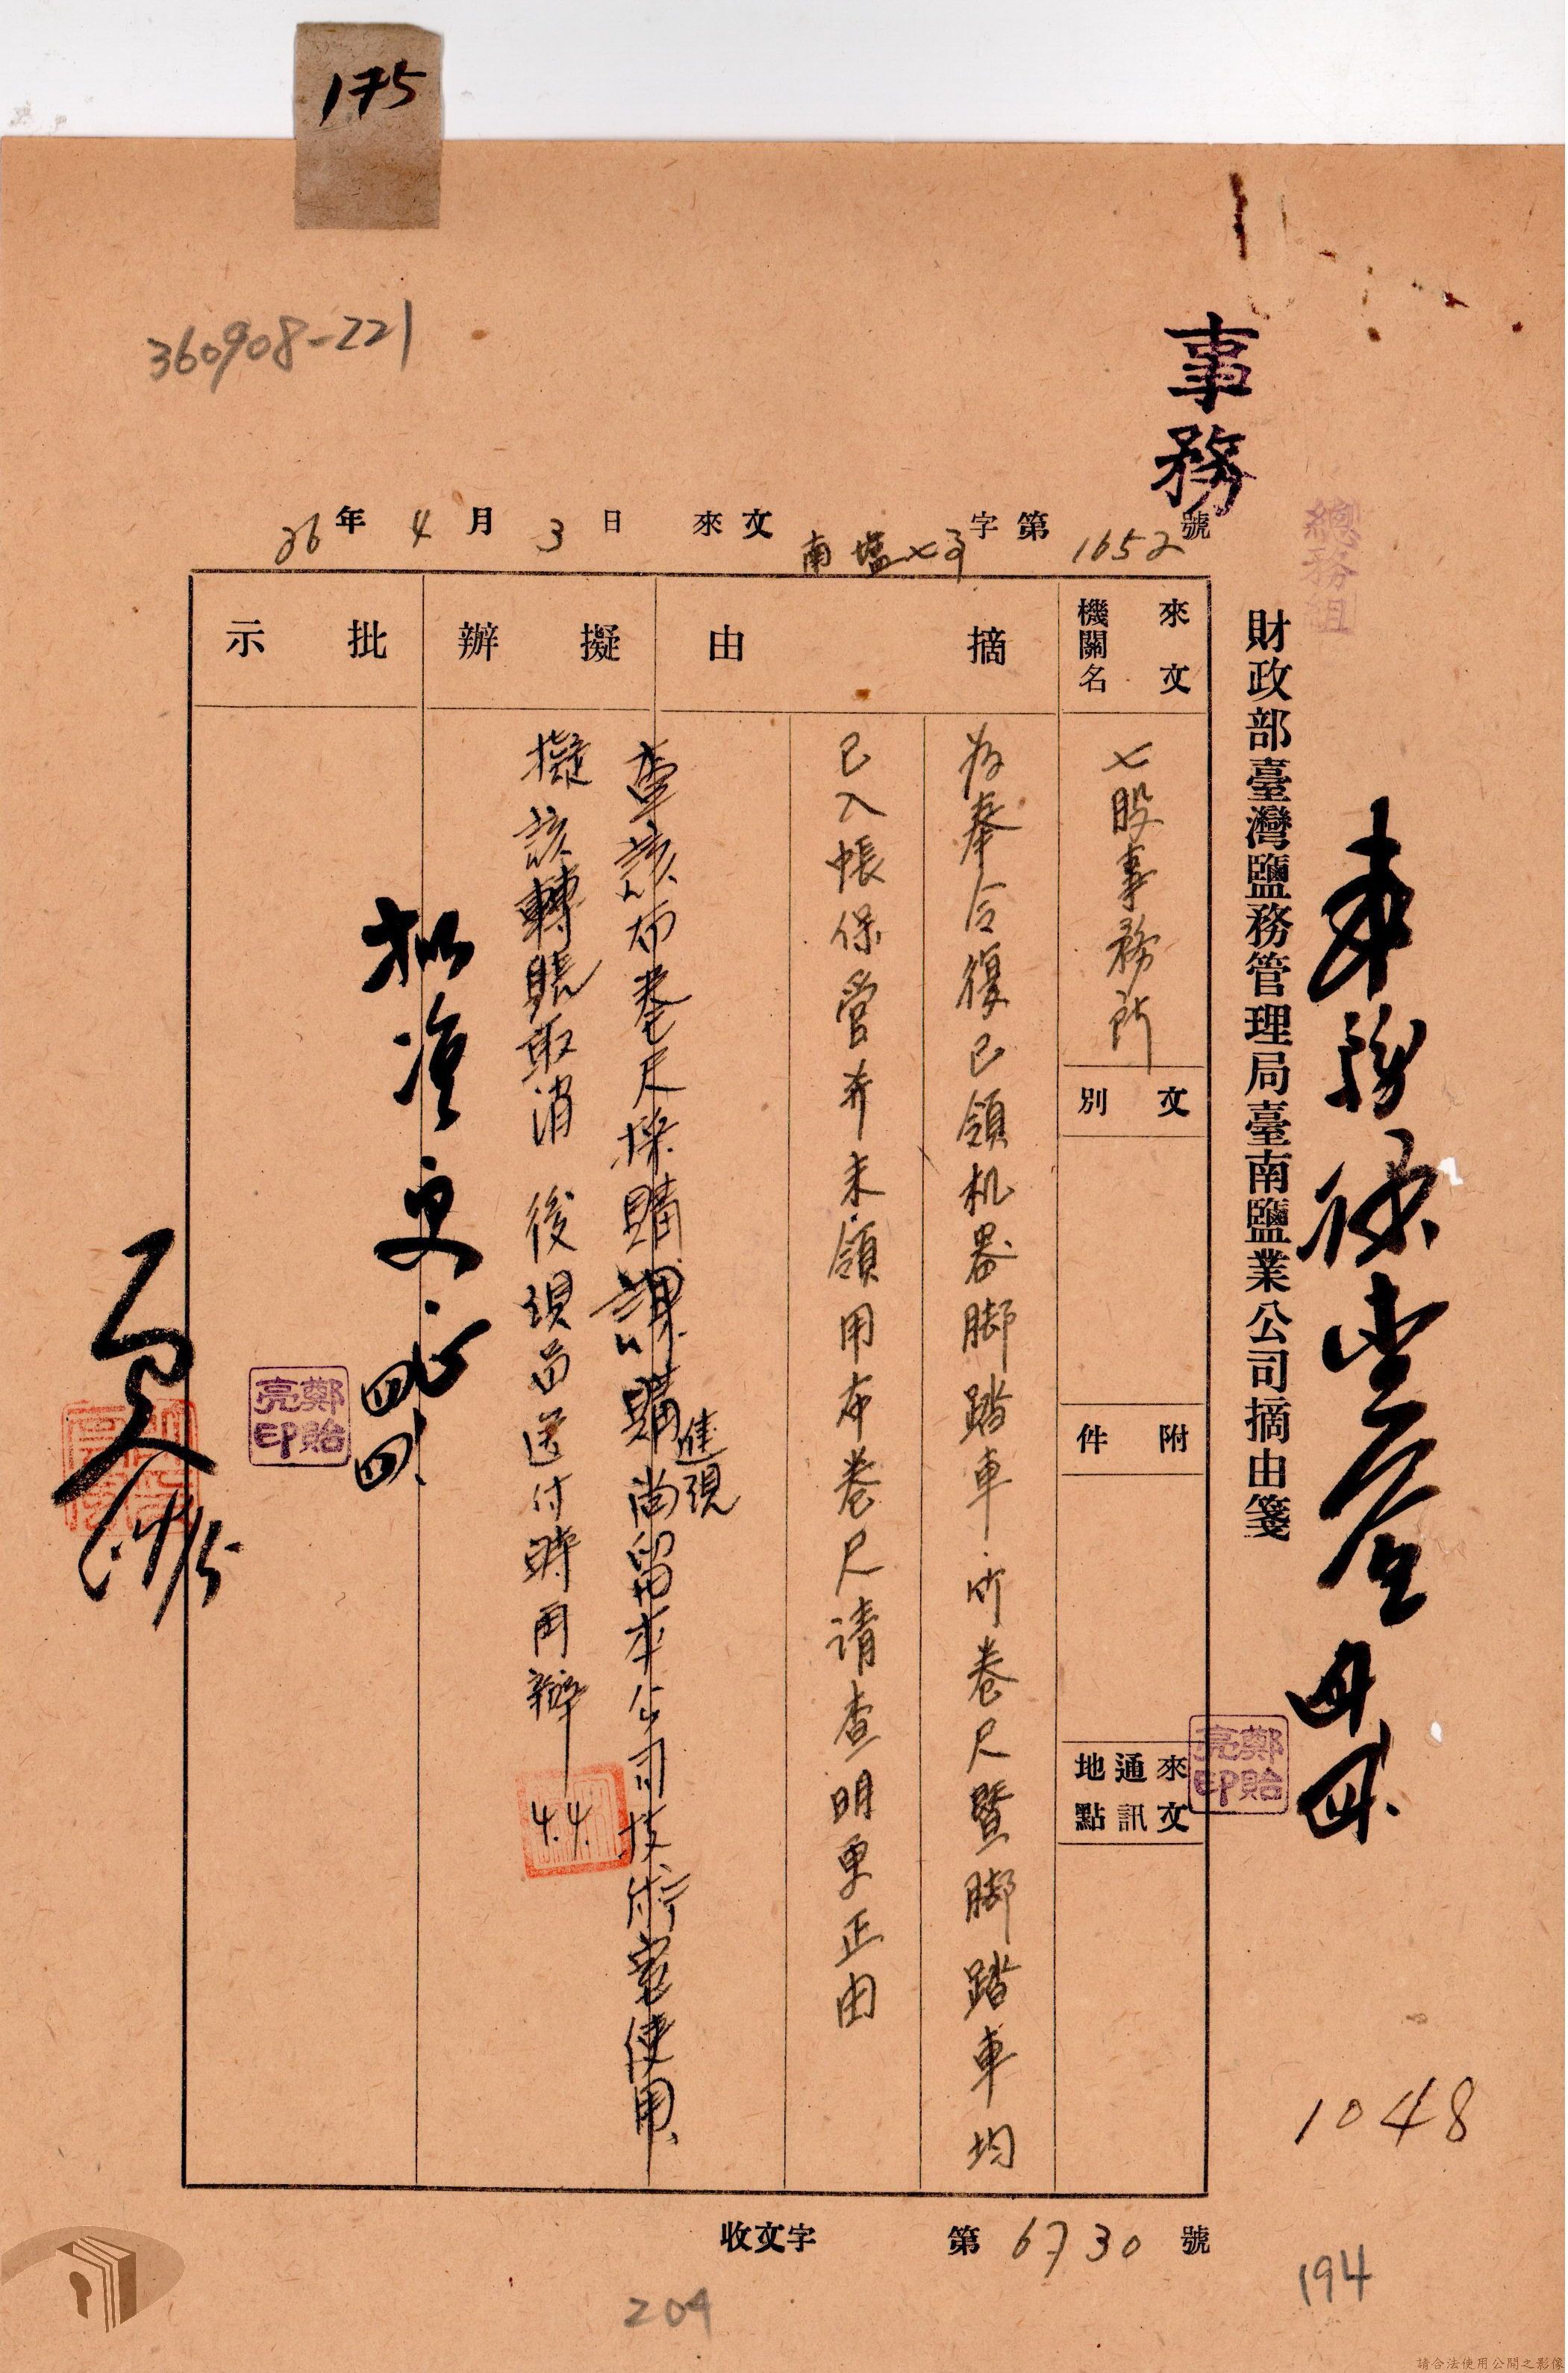 175
360908-221
事務
總務組
財政部臺灣鹽務管理局臺南鹽業公司摘由箋
36年4月3日 來文 南塩七子字第1652號
來文機關名
七股事務所
文別
附件
來文通訊地點
摘由
為奉令復已領机器脚踏車．竹卷尺暨脚踏車均
已入帳保管弁未領用布卷尺请查明更正由
擬辦
查該布卷尺採購課購進現尚留本公司技術室使用、
擬該轉賬取消 後現品送付時再辦
4.4.
批示
拟准更正
四.四.
鄭貽亮印
鄭貽亮印
1048
收文字 第6730號
194
204
請合法使用公開之影像